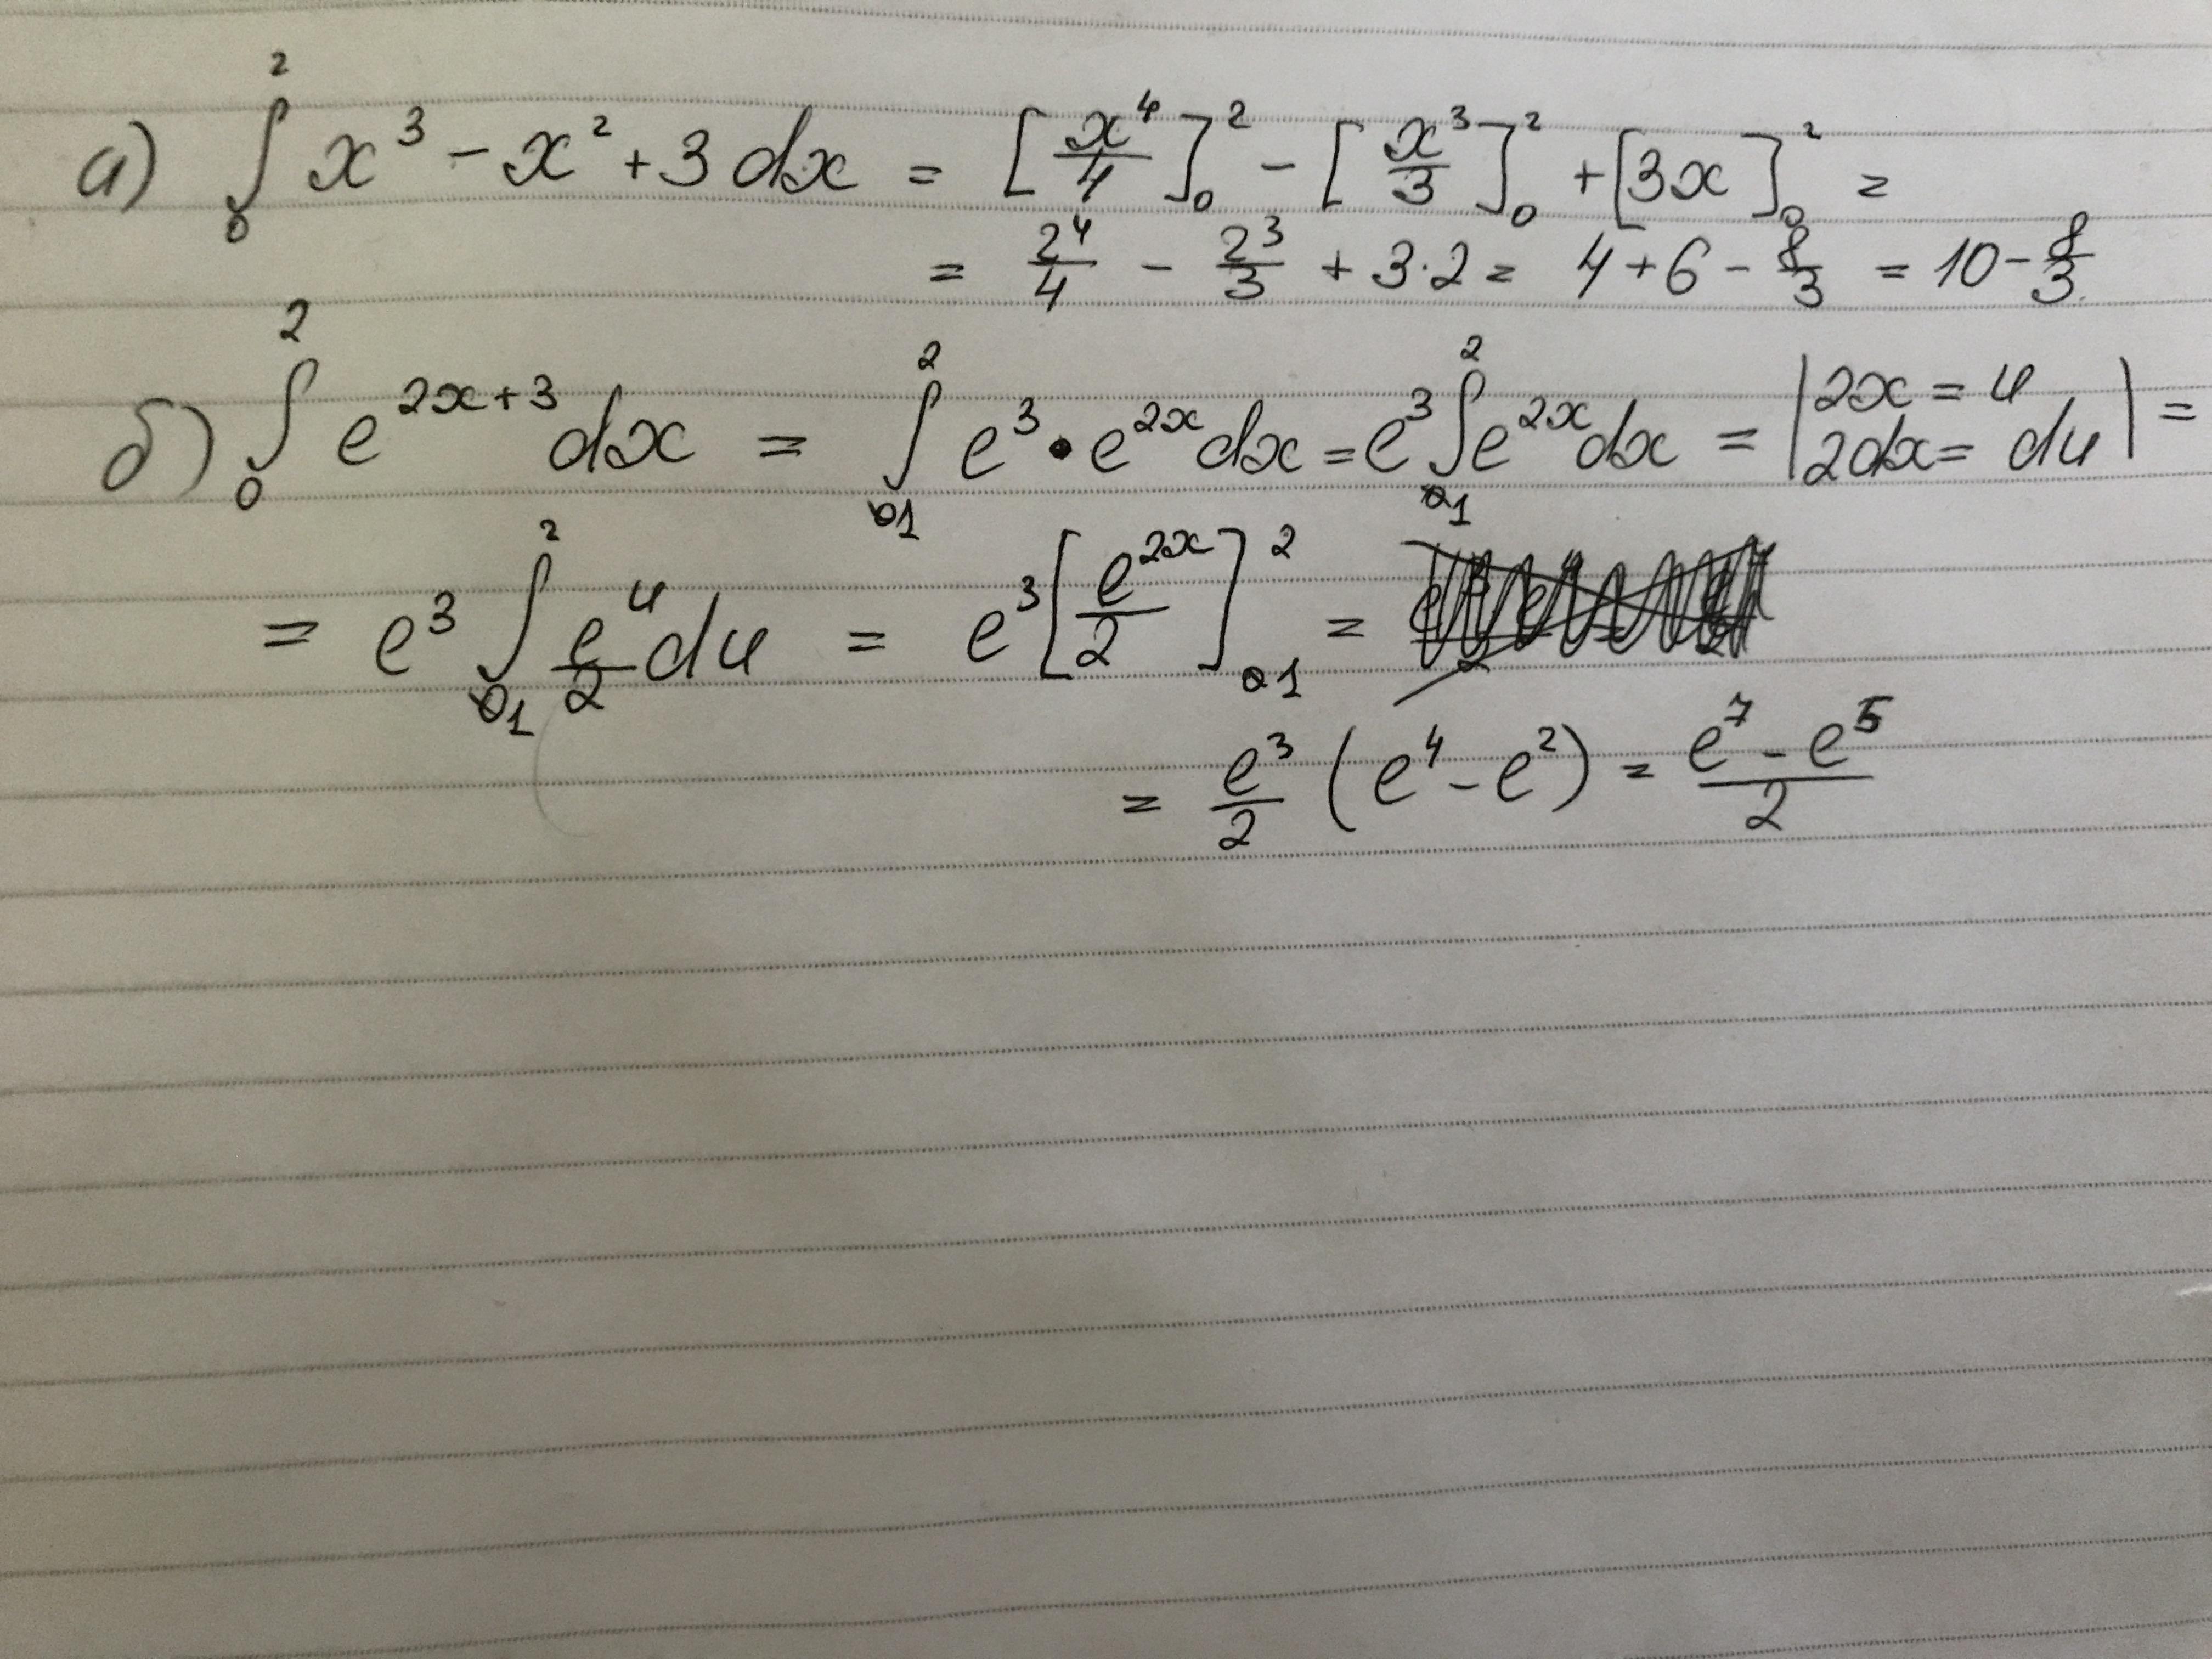 а) ∫₀² x³ - x² + 3 dx = [x⁴/4]₀² - [x³/3]₀² + [3x]₀² =
= 2⁴/4 - 2³/3 + 3·2 = 4 + 6 - 8/3 = 10 - 8/3
б) ∫₀² e^(2x+3) dx = ∫₁² e³ · e^(2x) dx = e³ ∫₁² e^(2x) dx = |2x = u
2dx = du| =
= e³ ∫₁² e^u/2 du = e³ [e^(2x)/2]₁² =
= e³/2 (e⁴ - e²) = (e⁷ - e⁵)/2